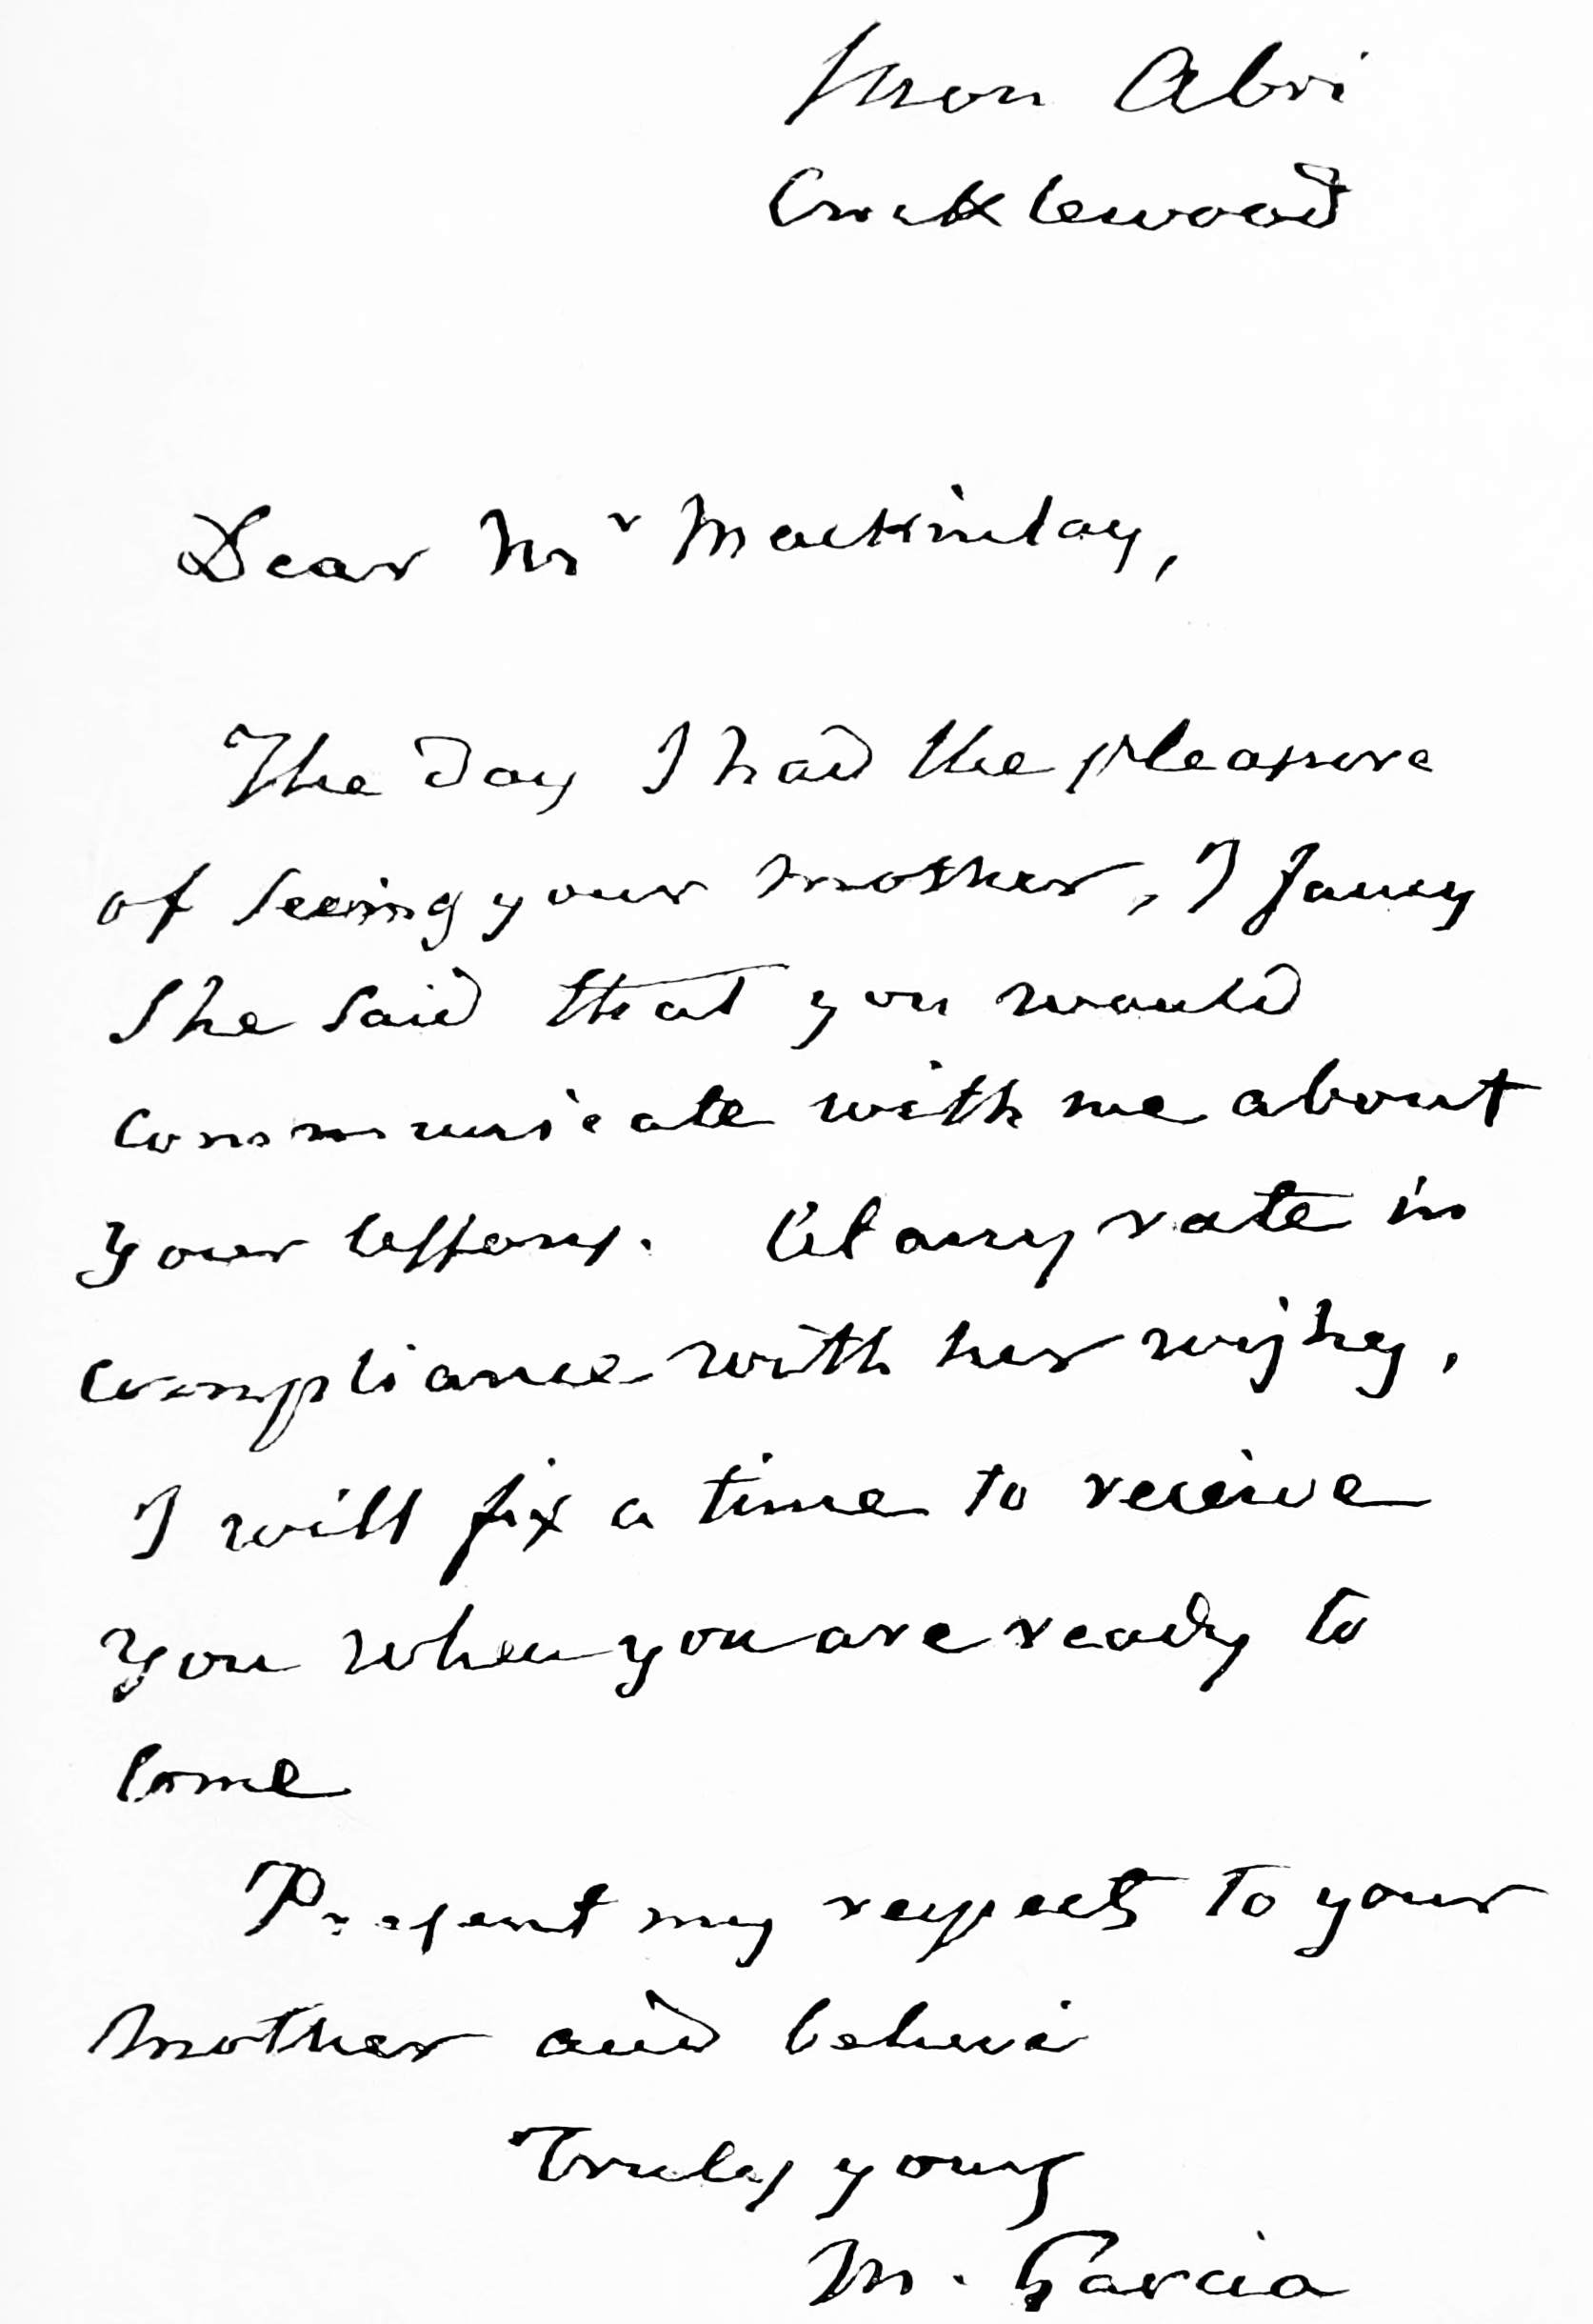 Mon Abri
Cricklewood
Dear Mr Mackinlay,
The day I had the pleasure
of seeing your mother, I fancy
she said that you would
communicate with me about
your lessons. At any rate in
compliance with her wishes,
I will fix a time to receive
you when you are ready to
come
Present my respects to your
mother and believe
Truly yours
M. Garcia